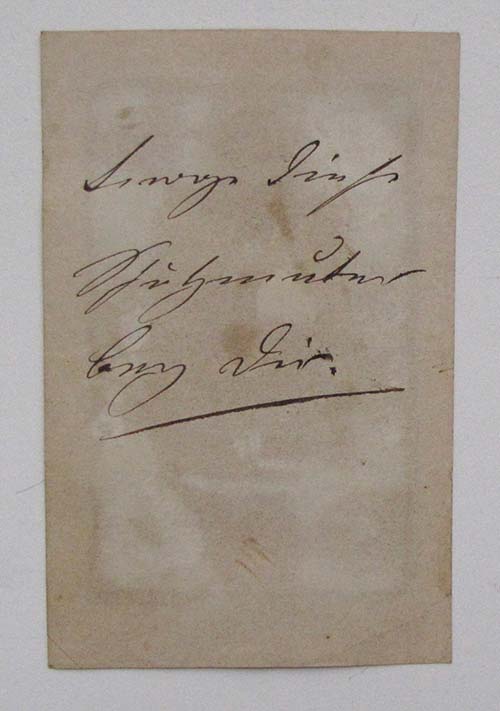 Trage diese
Schutzmuter
bey Dir.